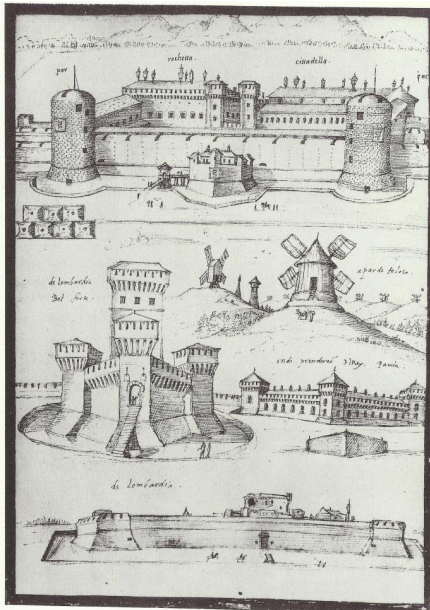 por
rocheta
citadella
de lombardia
Bel fort
a par de tolosa
ondi prenderaõ elRey
Pavia
de lombardia